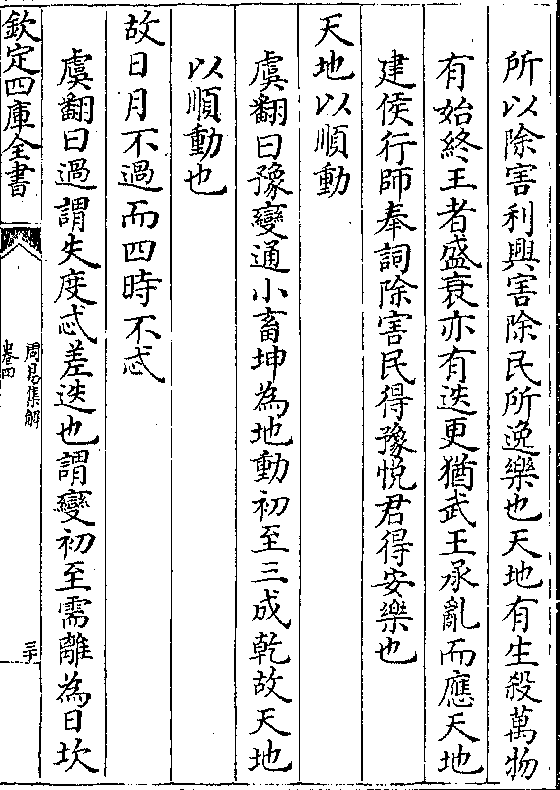 所以除害利興害除民所逸樂也天地有生殺萬物
有始終王者盛衰亦有迭更猶武王承亂而應天地
建侯行師奉詞除害民得豫悅君得安樂也
天地以順動
虞翻曰豫變通小畜坤為地動初至三成乾故天地
以順動也
故日月不過而四時不忒
虞翻曰過謂失度忒差迭也謂變初至需離為日坎
欽定四庫全書
周易集解
卷四
二十